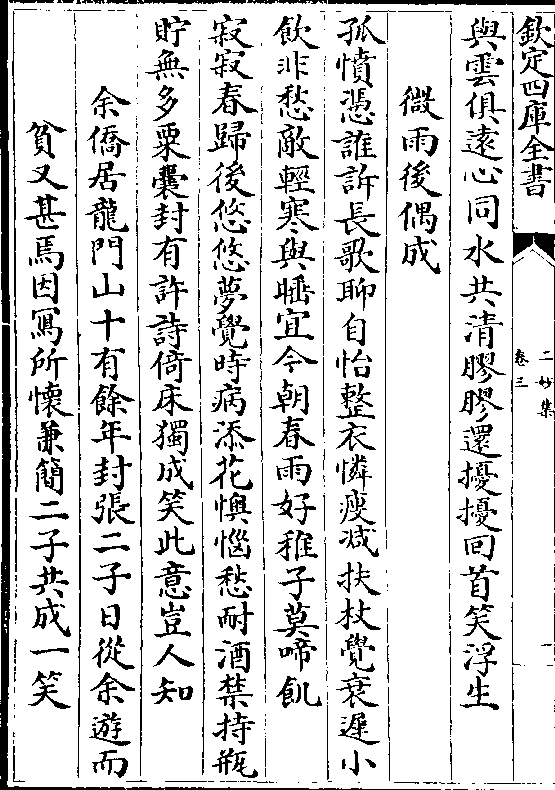 欽定四庫全書
二妙集
卷三
與雲俱遠心同水共清膠膠還擾擾回首笑浮生
微雨後偶成
孤憤憑誰訴長歌聊自怡整衣憐瘦減扶杖覺衰遲小
飲非愁敵輕寒與睡宜今朝春雨好稚子莫啼飢
寂寂春歸後悠悠夢覺時病添花懊惱愁耐酒禁持瓶
貯無多粟囊封有許詩倚床獨成笑此意豈人知
余僑居龍門山十有餘年封張二子日從余遊而
貧又甚焉因寫所懷兼簡二子共成一笑